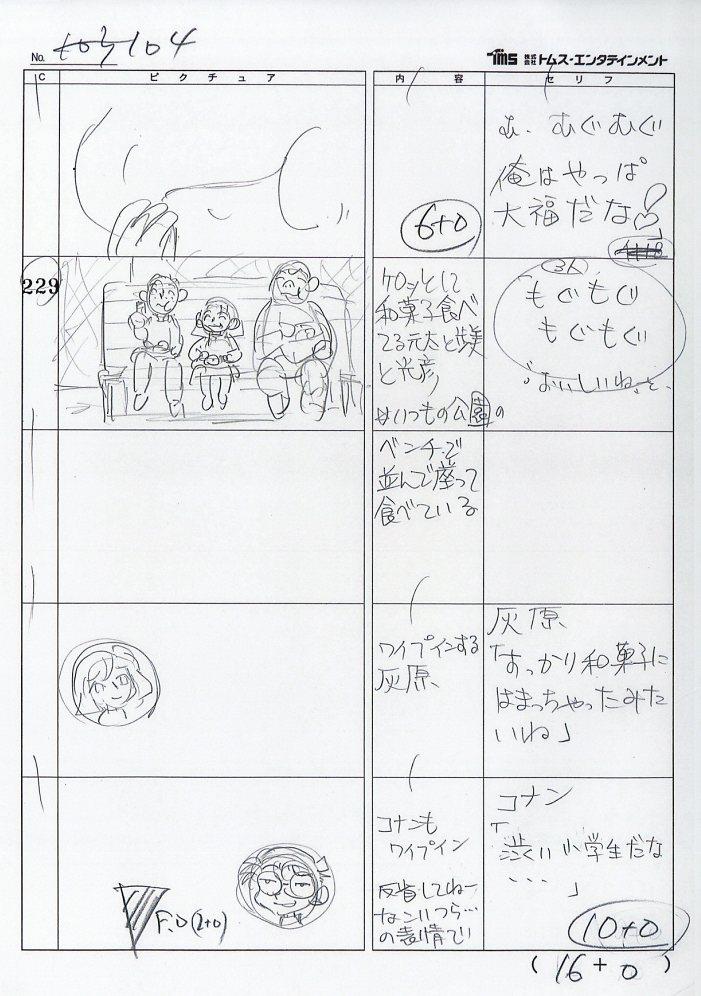 No. 104
TMS 株式会社 トムス・エンタテインメント
C ピクチュア 内容 セリフ
む、むぐむぐ
俺はやっぱ
大福だな
6+0
229
ケロッとして
和菓子食べ
てる元太と歩美
と光彦
いつもの公園の
ベンチで
並んで座って
食べている
3人
もぐもぐ
もぐもぐ
「おいしいね」と、
ワイプインする
灰原、
灰原、
「すっかり和菓子に
はまっちゃったみた
いね」
コナンも
ワイプイン
反省してねー
なこいつら…
の表情で
コナン
「渋い小学生だな
・・・」
F.O(2+0)
10+0
(16+0)